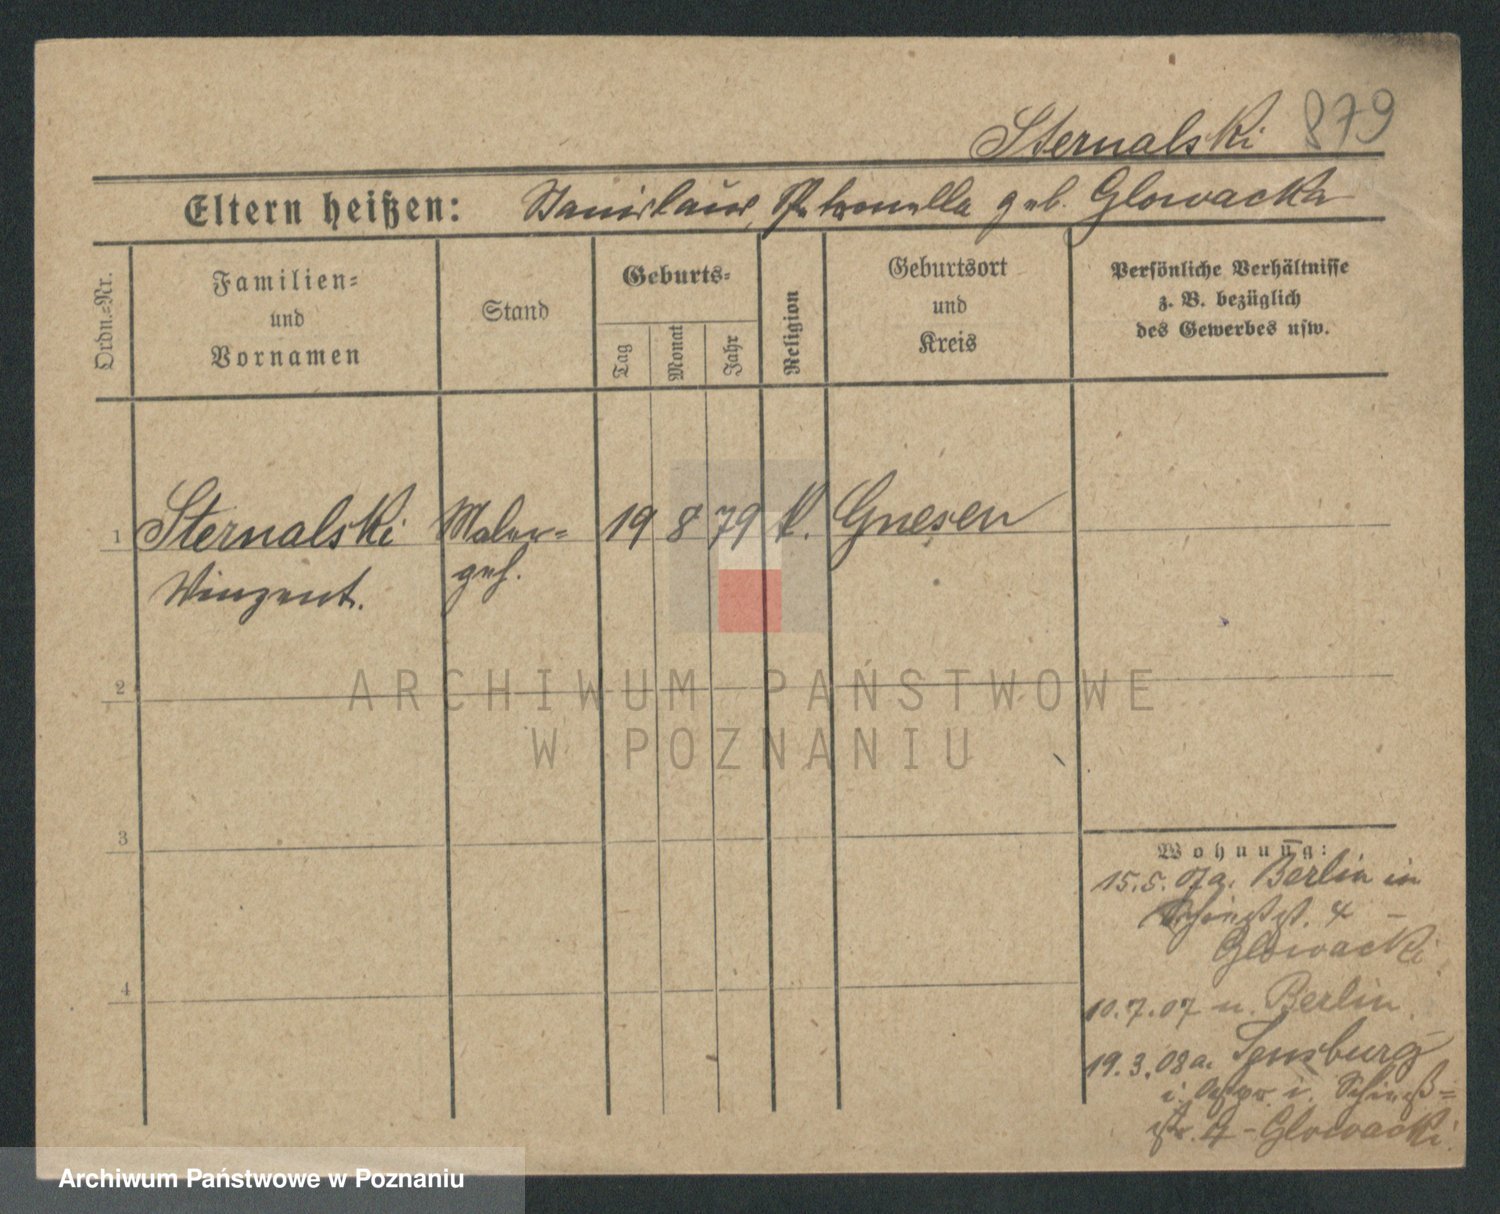 Sternalski 879
Eltern heißen: Stanislaus, Petronella geb. Glowacka
Ordn.-Nr.
Familien-
und
Vornamen
Stand
Geburts-
Tag
Monat
Jahr
Religion
Geburtsort
und
Kreis
Persönliche Verhältnisse
z. B. bezüglich
des Gewerbes usw.
1 Sternalski Maler- 19 8 79 k. Gnesen
Winzent. geh.
2
3
4
Wohnung:
15.5.07 a. Berlin in
Schießst. 4 -
Glowacki
10.7.07 n. Berlin
19.3.08 a. Sensburg
i. Ostpr. i. Schieß=
str. 4 - Glowacki.
ARCHIWUM PAŃSTWOWE
W POZNANIU
Archiwum Państwowe w Poznaniu